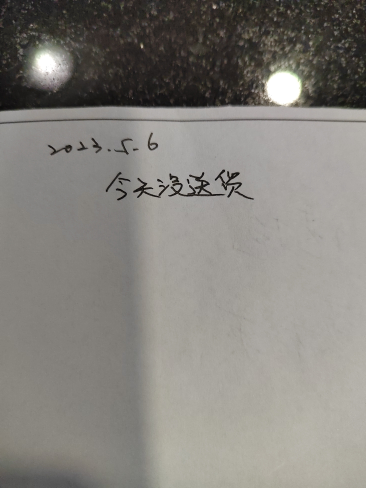 2023.5.6
今天没送货